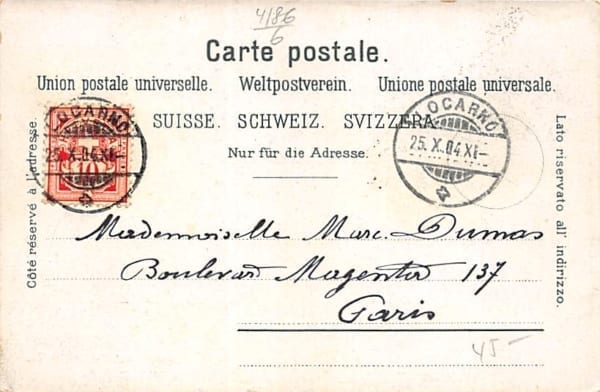 4186
6
Carte postale.
Union postale universelle. Weltpostverein. Unione postale universale.
SUISSE. SCHWEIZ. SVIZZERA.
Nur für die Adresse.
Côté réservé à l'adresse.
Lato riservato all' indirizzo.
LOCARNO
25.X.04.XI–
10
LOCARNO
25.X.04.XI–
Mademoiselle Marc. Dumas
Boulevard Magenta 137
Paris
45–